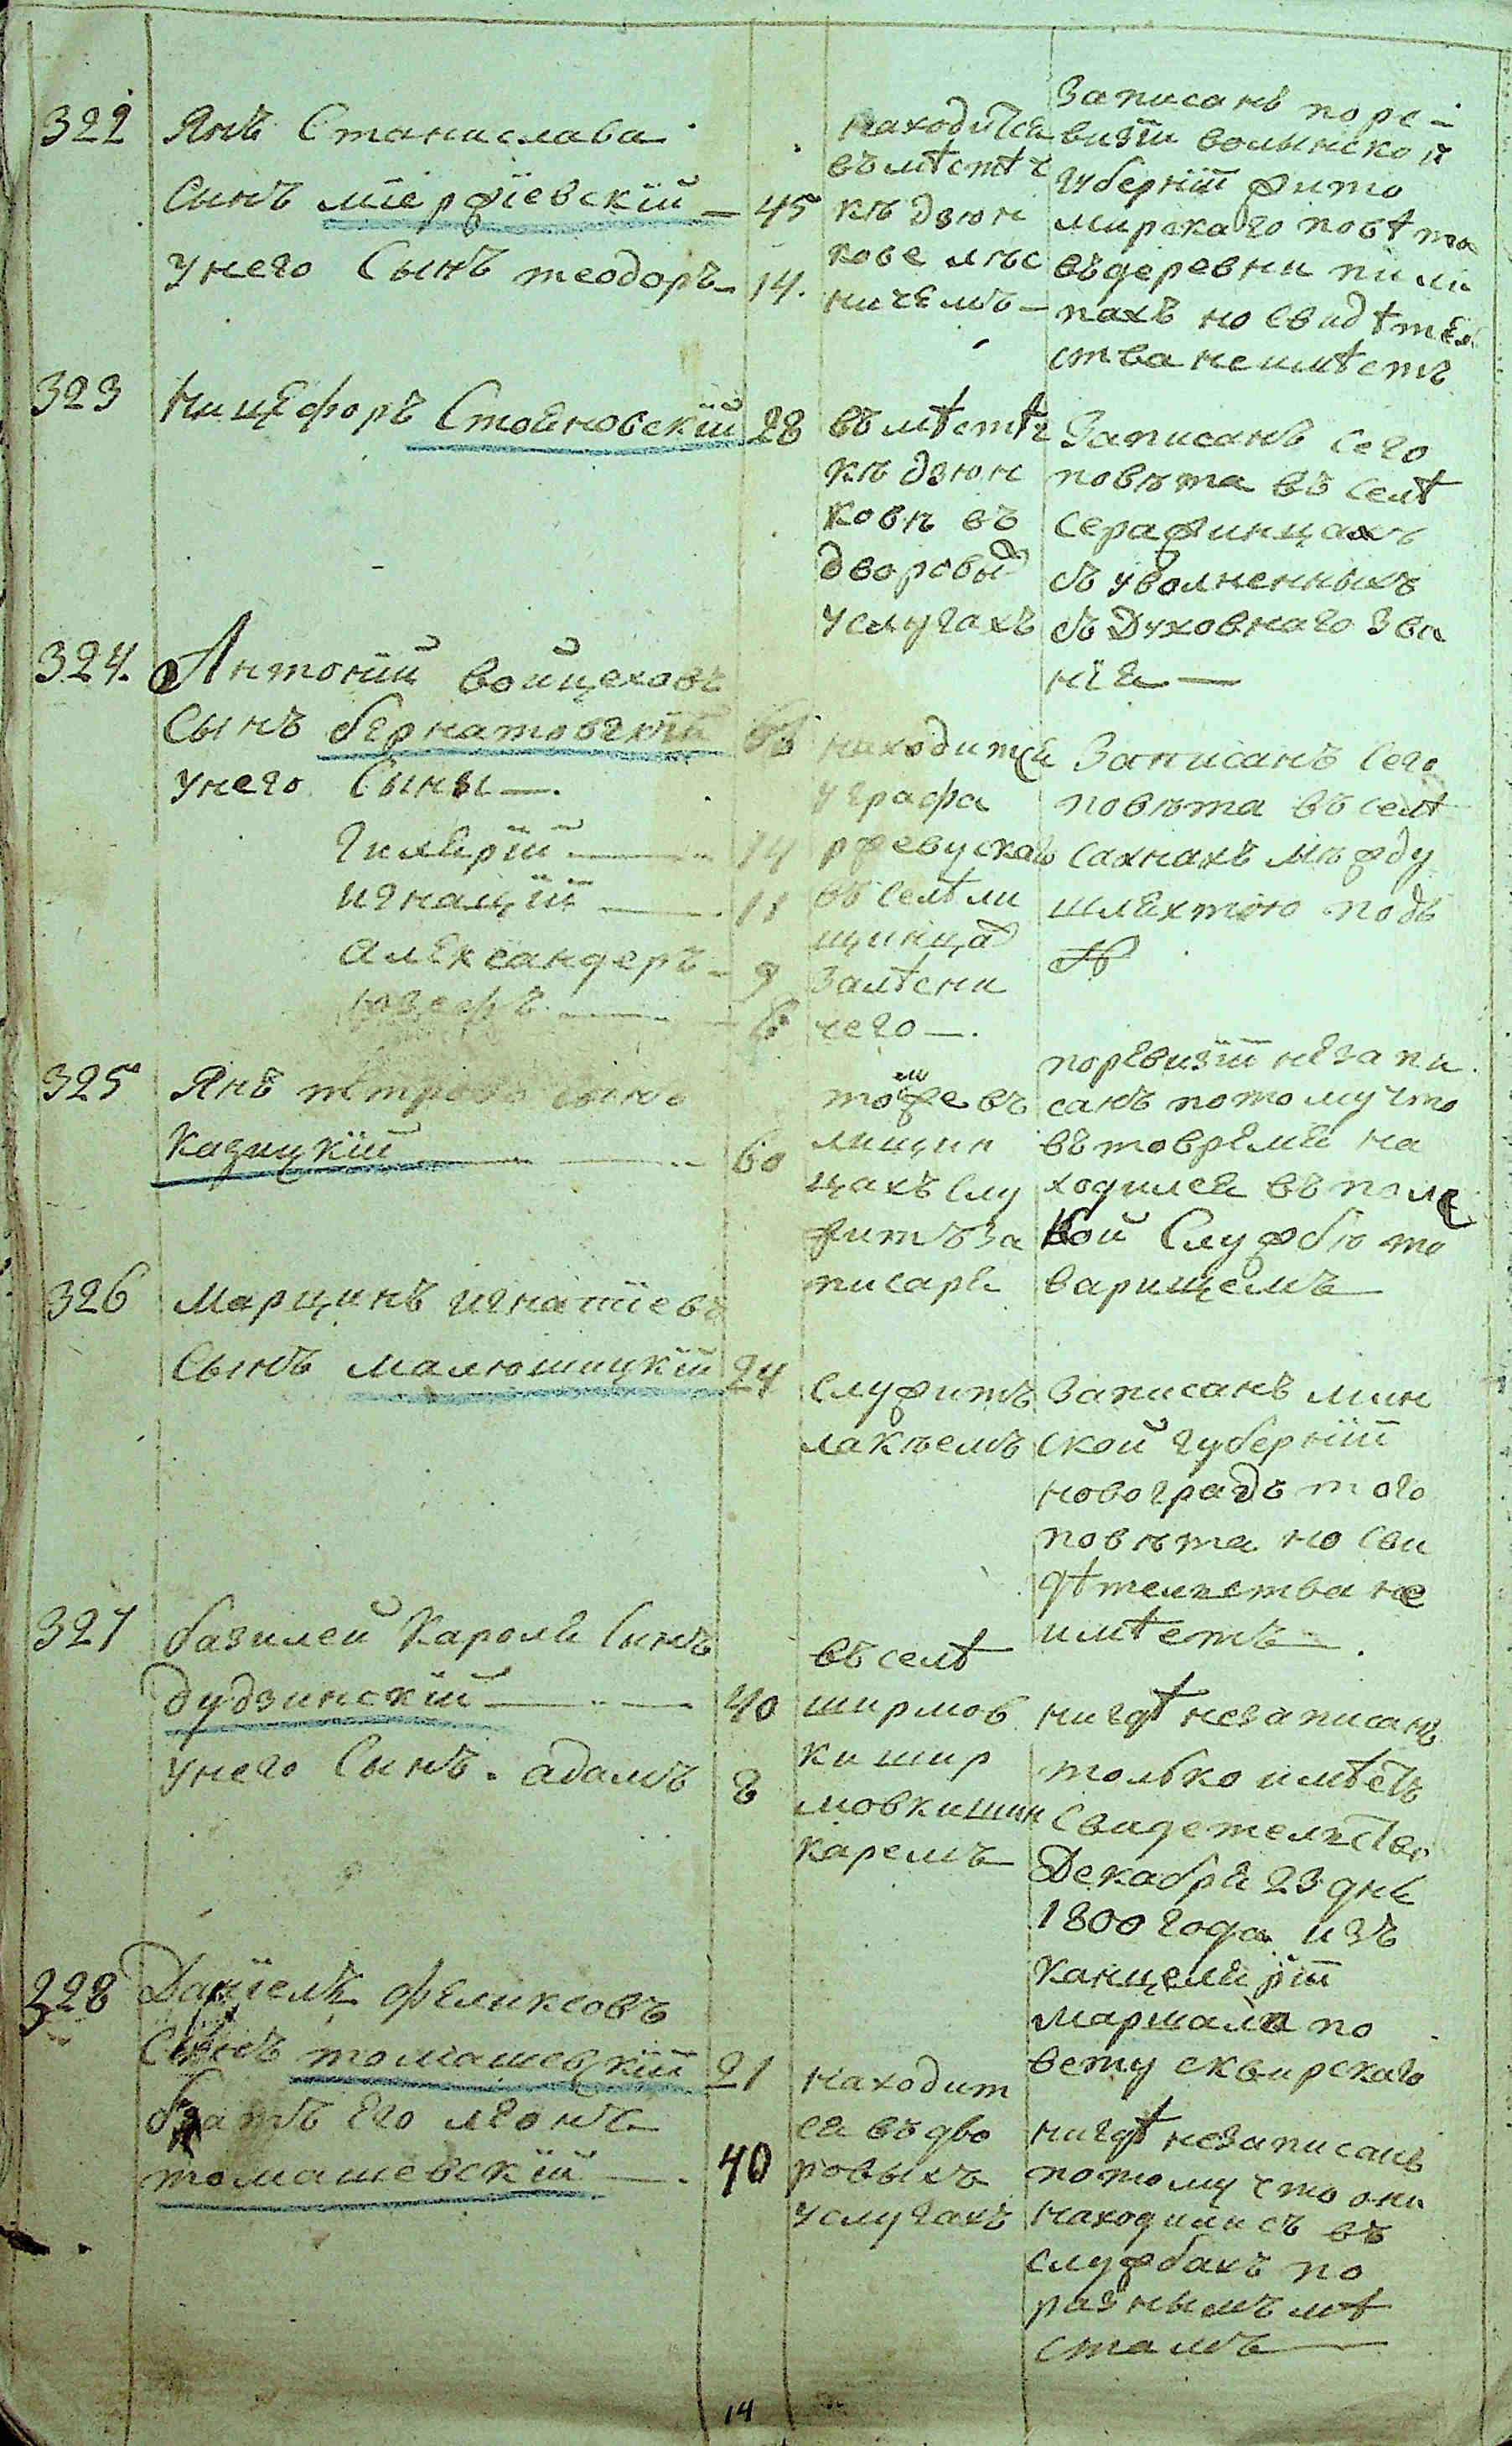 322
Янъ Станислава
Сынъ мїерфїевскїй — 45
унего Сынъ теодоръ — 14.
находится
въмѣстѣч
къ дзюн
кове лѣс
ничемъ —
Записанъ поре-
визїи волынской
губернїи жито
мирскаго повѣта
въдеревни пили
пахъ но свидѣтел
ства неимѣетъ
323
Ницефоръ Стояновскїй 28
въ мѣстѣч
къ дзюн
ковѣ въ
дворовых
услугахъ
Записанъ сего
повѣта въ селѣ
серафинцахъ
съ уволненныхъ
съ духовнаго зва
нїя —
324.
Антонїй войцеховъ
Сынъ бернатовскїй
унего Сыны —.
Гилярїй — 14
игнацїй — 11
александеръ — 9
юзефъ — 6
находится
у графа
ржевускаго
въ селѣ ли
щинцах
залѣсни
чего —.
Записанъ сего
повѣта въ селѣ
сахнахъ между
шляхтою подъ
№
325
Янъ петровъ сынъ
Казицкїй — 60
тожъ въ
лищин
цахъ слу
житъ за
писаря
поревизїи незапи
санъ потомучто
въ товремя на
ходился въ поль
кой службю то
варищемъ
326
Марцинъ игнатїевъ
Сынъ малюшицкїй 24
служитъ
лакѣемъ
записанъ мин
ской губернїи
новоградъ того
повѣта но сви
дѣтелства не
имѣетъ —.
327
базилей Кароля Сынъ
дудзинскїй — 40
унего Сынъ. адамъ 8
въ селѣ
ширмов
ки шир
мовки шин
каремъ
нигдѣ незаписанъ
только имѣетъ
свидетелство
Декабря 23 дня
1800 года изъ
Канцелярїи
маршала по
вету сквирскаго
328
Данїелъ феликсовъ
Сынъ томашевскїй 21
братъ его леонъ
томашевскїй — 40
находит
ся въ дво
ровыхъ
услугахъ
нигдѣ незаписанъ
потому что они
находилисъ въ
службахъ по
разнымъ мѣ
стамъ —
14